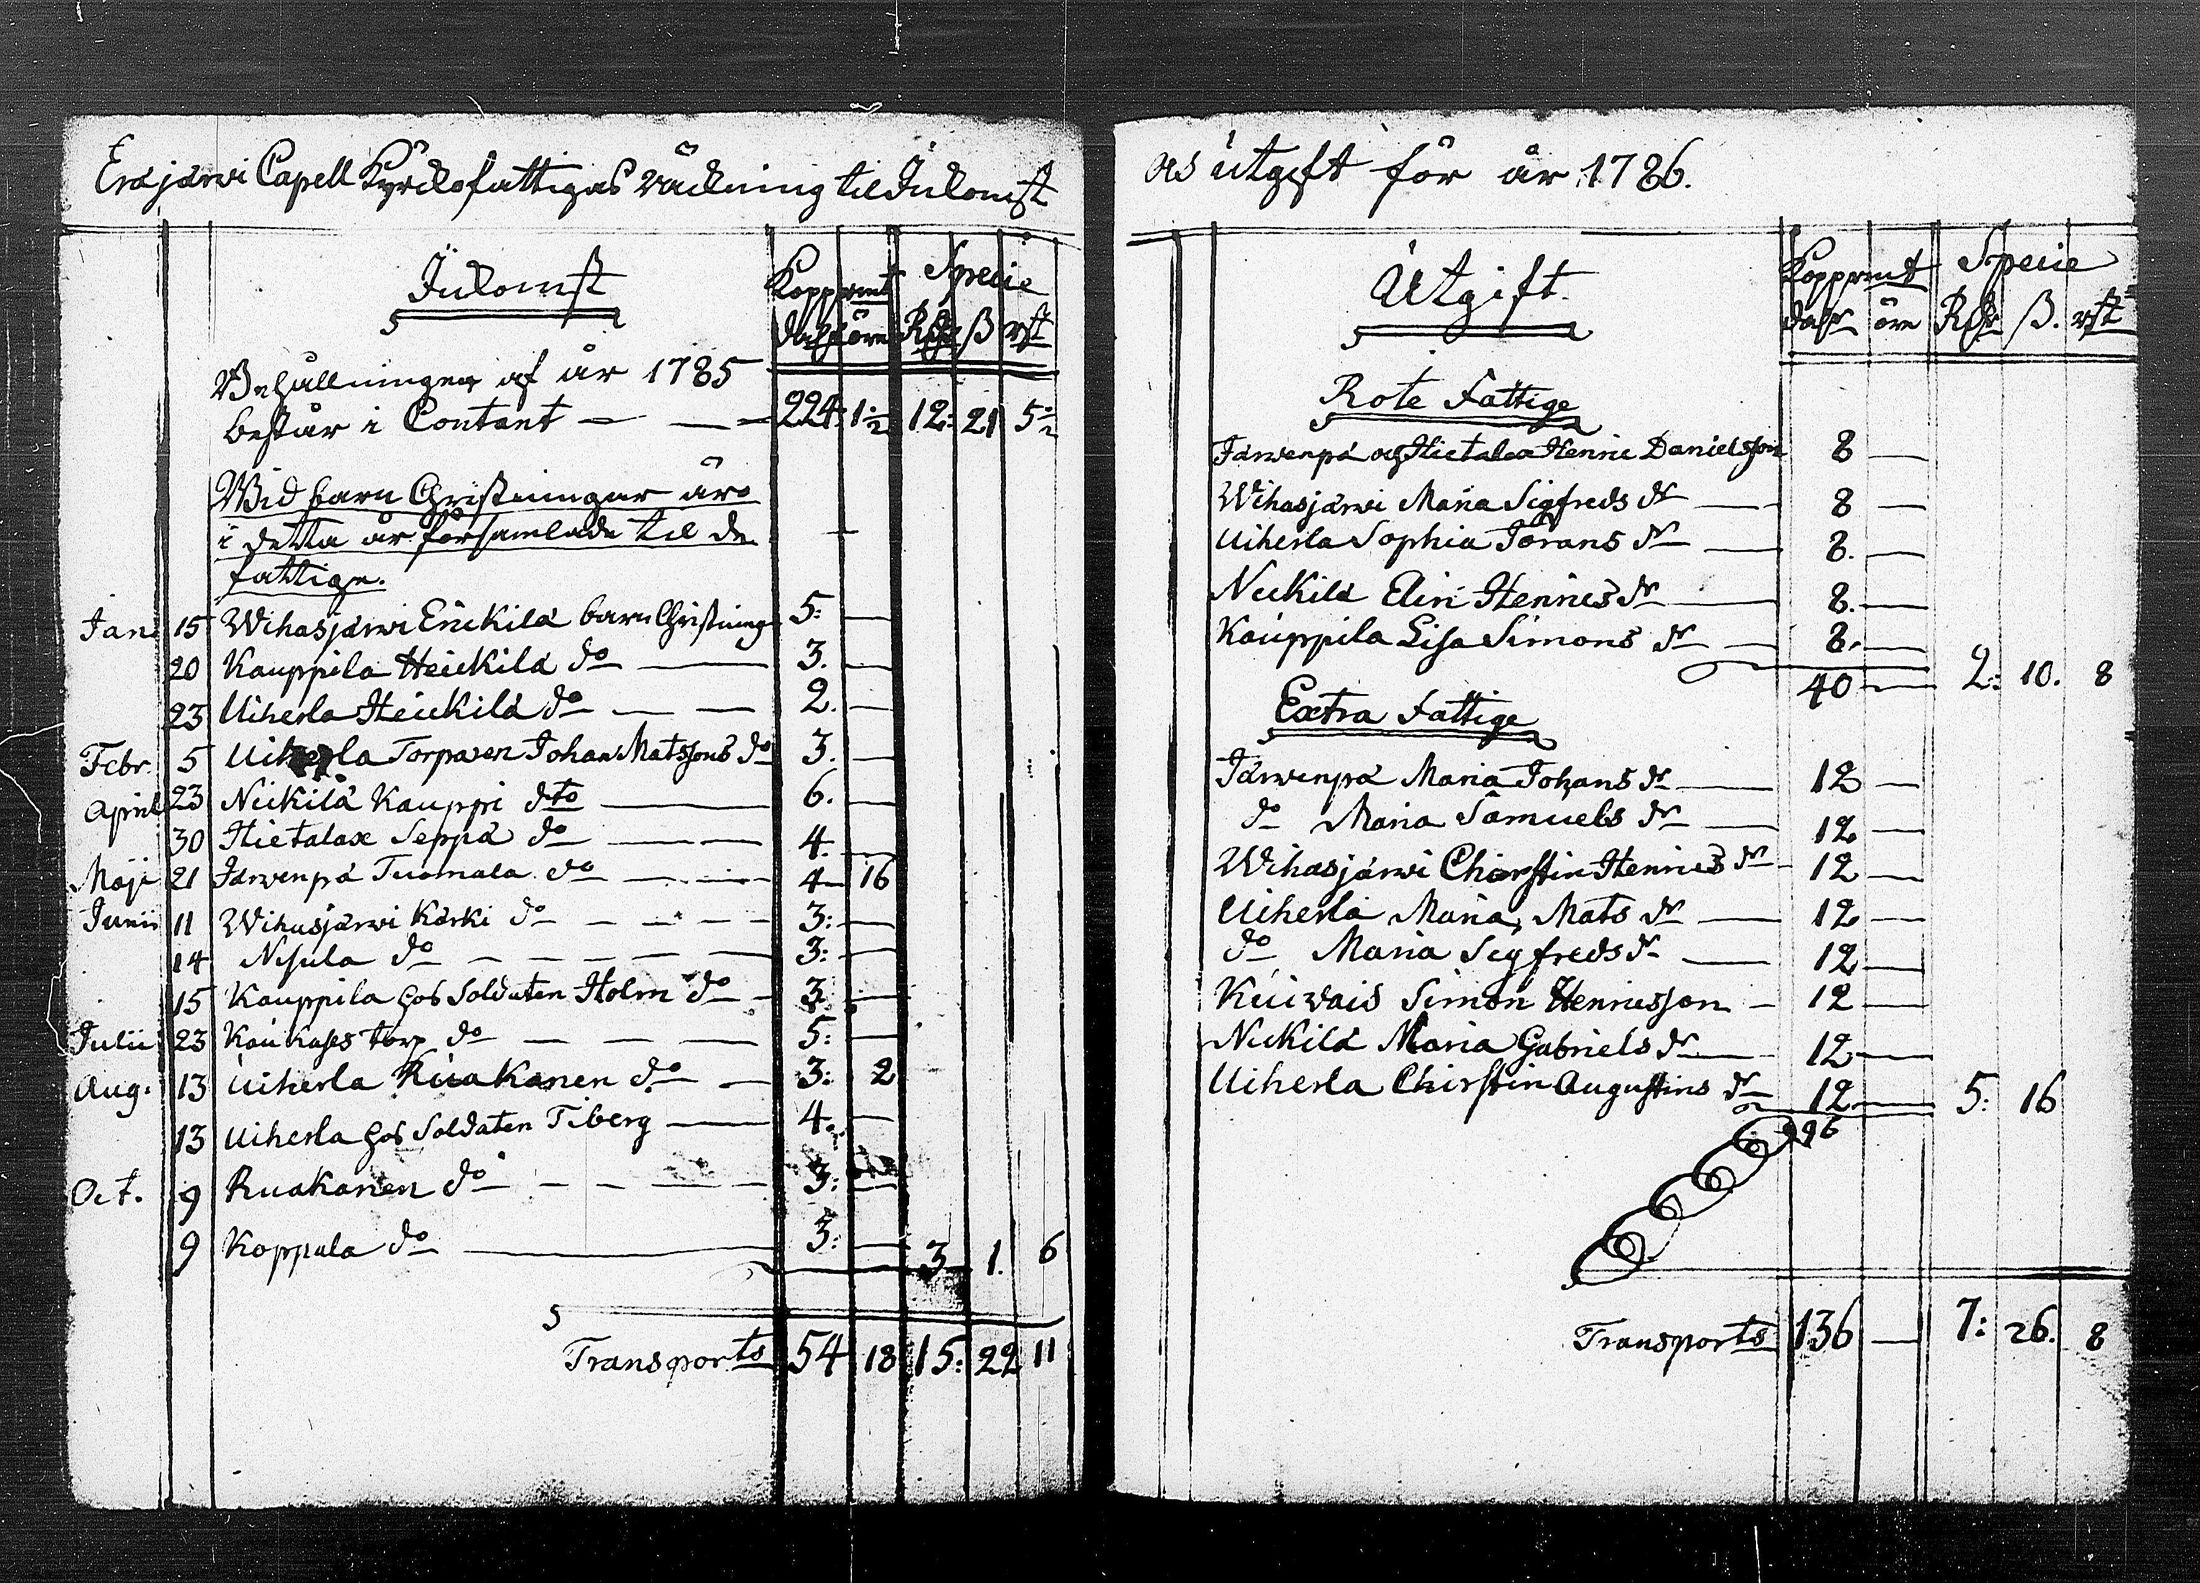 Eräjärwi Capell Kyrckofattigas räckning til Inkomst
Inkomst
Kopprmt Specie
dalr öre Rdr ß rst
Behållningen af år 1785
består i Contant — — — 224: 1½ 12: 21 5½
Wid barn Christningar äro
i detta år församlade til de
fattige.
Jan: 15 Wihasjärwi Erickilä barn Christning 5: —
20 Kauppila Heickilä do — 3. —
23 Uiherla Heickilä do — — 2. —
Febr. 5 Uiherla Torparen Johan Matssons do 3. —
April 23 Nickilä Kauppi dto — 6. —
30 Hietalax Seppä do — — 4. —
Maji 21 Järwenpä Tuomala do — — 4 — 16
Junii 11 Wihasjärwi Kärki do — — — 3: —
14 Nisula do — — — — 3: —
15 Kauppila hos Soldaten Holm do — 3. —
Julii 23 Kaukases torp do — — — 5: —
Aug. 13 Uiherla Ruakanen do — 3: 2
13 Uiherla hos Soldaten Tiberg — 4. —
Oct. 9 Ruakanen do — — — 3: —
9 Koppala do — 3: — 3 1. 6
Transporto 54 18 15: 22 11
och utgift för år 1786.
Utgift.
Kopprmt Specie
dalr öre Rdr ß. rst
Rote Fattige
Järwenpä och Hietalax Henric Danielsson 8 —
Wihasjärwi Maria Sigfreds dr — 8 —
Uiherla Sophia Görans dr — 8. —
Nickilä Elin Henrics dr — 8. —
Kauppila Lisa Simons dr — 8. —
40 — 2: 10. 8
Extra Fattige
Järwenpä Maria Johans dr — 12 —
do Maria Samuels dr — 12 —
Wihasjärwi Chirstin Henrics dr — 12 —
Uiherla Maria Mats dr — 12 —
do Maria Sigfreds dr — 12 —
Simon Henricsson — 12 —
Nickilä Maria Gabriels dr — 12 —
Uiherla Chirstin Augustins dr 12 — 5: 16
96
Transporto 136 — 7: 26. 8